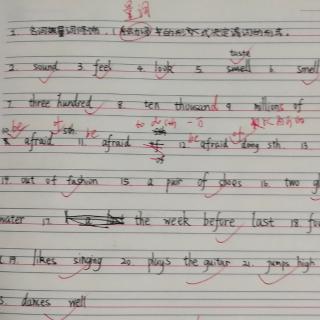 量词
1. 名词被量词修饰, 量词的形式决定谓词的形式.
taste
2. sound 3. feel 4. look 5. smell 6. smell
7. three hundred 8. ten thousand 9. millions of
of sth. be to do sth be of
10. afraid 11. afraid 12 afraid dong sth. 13.
14. out of fashion 15. a pair of shoes 16. two
water 17. the week before last 18
19. likes singing 20. plays the guitar 21. jumps high
dances well